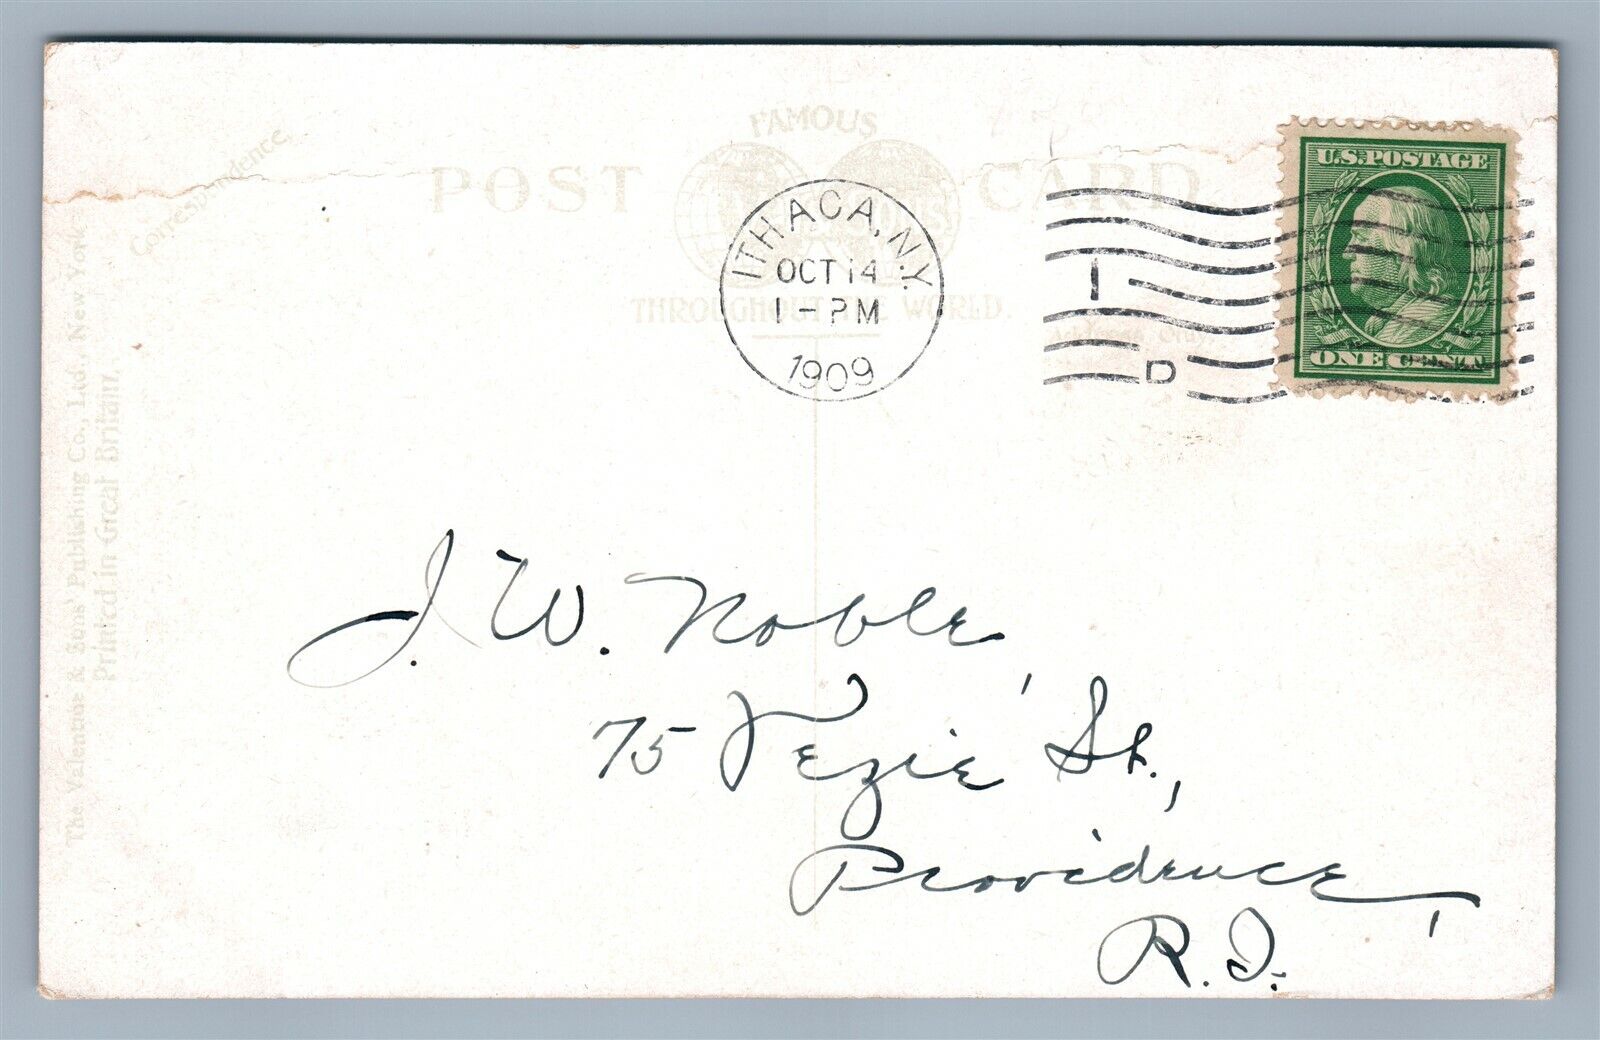 FAMOUS
POST CARD
THROUGHOUT THE WORLD.
Correspondence
The Valentine & Sons' Publishing Co., Ltd., New York
Printed in Great Britain.
ITHACA, N.Y.
OCT 14
1-PM
1909
1
D
U.S. POSTAGE
ONE CENT
J. W. Noble,
75 Vezie St.,
Providence,
R.I.